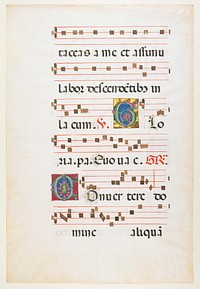 taceas a me et assimu
labor descendētibus in
lacum. V. Glo
ria. pa. Quo ua e. GR.
Onuertere do
mine aliquā